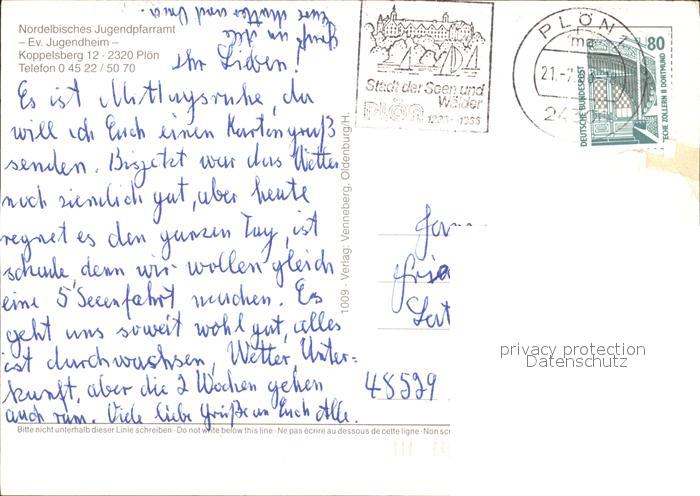 Nordelbisches Jugendpfarramt
– Ev. Jugendheim –
Koppelsberg 12 · 2320 Plön
Telefon 0 45 22 / 50 70
Ihr Lieben!
Es ist Mittagsruhe, da
will ich Euch einen Kartengruß
senden. Bisjetzt war das Wetter
noch ziemlich gut, aber heute
regnet es den ganzen Tag, ist
schade, denn wir wollen gleich
eine 5 Seenfahrt machen. Es
geht uns soweit wohl gut, alles
ist durchwachsen, Wetter Unter-
kunft, aber die 2 Wochen gehen
auch rum. Viele liebe Grüße an Euch Alle.
Gruß an Alle
Eure Mutter und Oma.
Bitte nicht unterhalb dieser Linie schreiben · Do not write below this line · Ne pas écrire au dessous de cette ligne · Non sc
1009 · Verlag: Venneberg, Oldenburg/H.
Stadt der Seen und
Wälder
PLÖN 1236 – 1986
PLÖN 1
21.-7.
DEUTSCHE BUNDESPOST
80
ZECHE ZOLLERN II DORTMUND
48529
privacy protection
Datenschutz